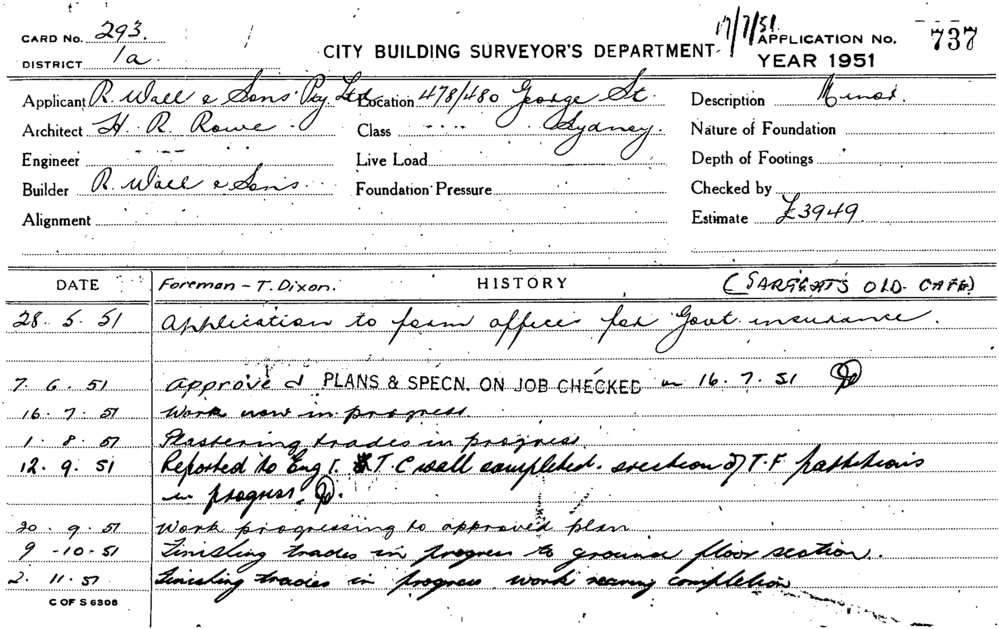 CARD No. 293.
DISTRICT 1a.
CITY BUILDING SURVEYOR'S DEPARTMENT
17/7/51
APPLICATION No. 737
YEAR 1951
Applicant R. Wall & Sons Pty Ltd Location 478/480 George St. Description Minor.
Architect H. R. Rowe. Class Sydney. Nature of Foundation
Engineer Live Load Depth of Footings
Builder R. Wall & Sons Foundation Pressure Checked by
Alignment Estimate £3949.
DATE Foreman - T. Dixon. HISTORY (SARGEANTS OLD CAFE)
28. 5. 51 Application to form offices for Govt. insurance.
7. 6. 51 approved PLANS & SPECN. ON JOB CHECKED on 16. 7. 51
16. 7. 51 Work now in progress
1. 8. 51 Plastering trades in progress
12. 9. 51 Reported to Eng T.C wall completed. erection of T.F partitions
in progress.
20. 9. 51 Work progressing to approved plan
9 -10- 51 Finishing trades in progress to ground floor section.
2. 11. 51 Finishing trades in progress work nearing completion
C OF S 6308